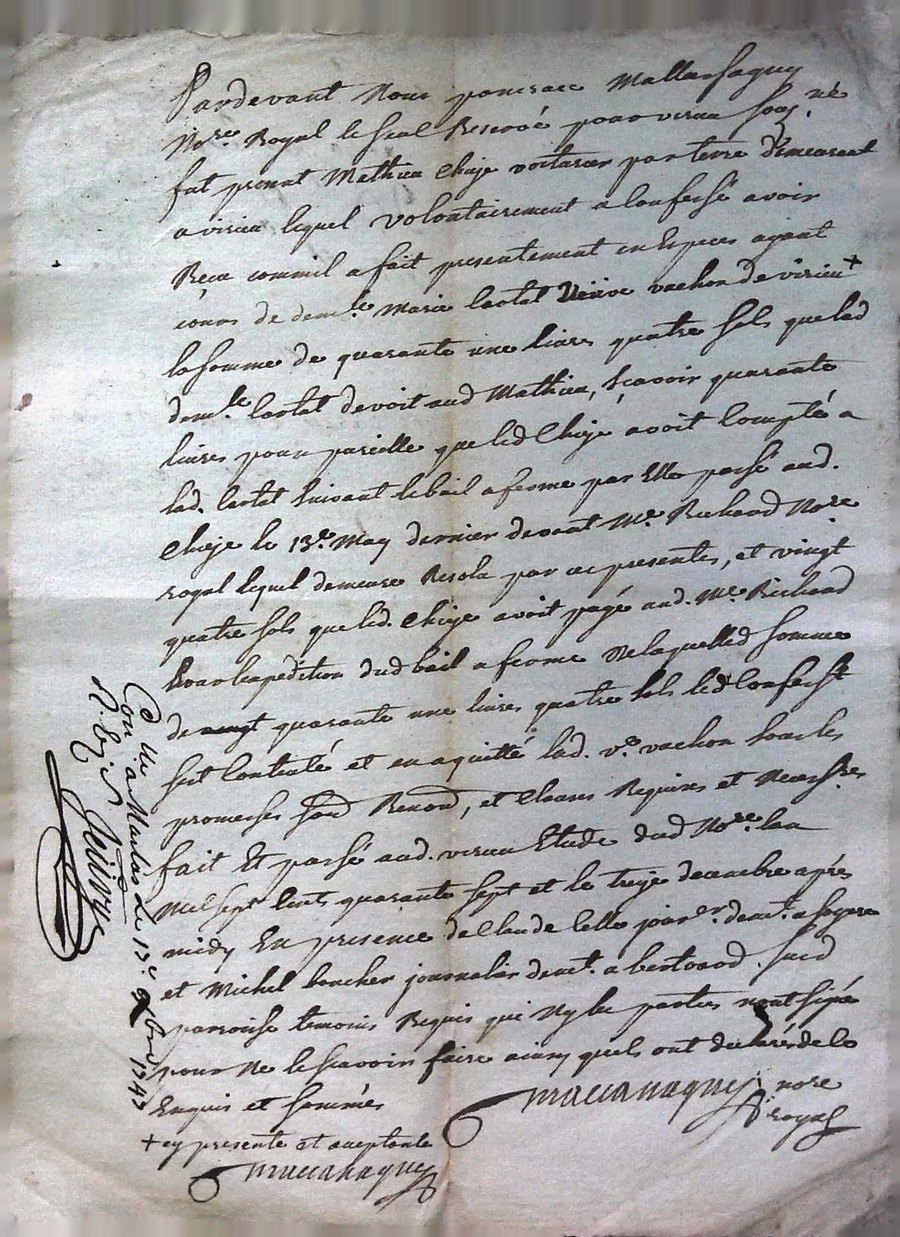 Pardevant Nous
No.re Royal le seul Reservé pour virieu soug.né
fut present Mathieu Chije voiturier par terre demeurant
a virieu lequel volontairement a confessé avoir
Receu comme il a fait presentement en Especes ayant
cours de dem.lle Marie Lastat Veuve vachon de virieu +
la somme de quarante une livres quatre sols que lad
dem.lle Lastat devoit aud Mathieu, scavoir quarante
livres pour pareille que led Chije avoit compté a
lad. Lastat suivant le bail a ferme par Elle passé aud.
Chije le 13.e May dernier devant M.e Richard No.re
royal lequel demeure Resolu par ces presentes, et vingt
quatre sols que led. Chije avoit payé aud. M.e Richard
pour l'expedition dud bail a ferme De laquelled somme
de quarante une livres quatre sols led Confess.t
s'est contenté et en a quitté lad. v.e vachon sous les
promesses et Clauses Requises et Necess.res
fait Et passé aud. virieu Etude dud No.re lan
Mil sept cents quarante sept et le treize decembre apres
midy En presence de Claude
et Michel boucher journalier dem.t a
parroisse temoins Requis qui Ny les parties n'ont signé
pour Ne le scavoir faire ainsy quels ont declaré de ce
Enquis et sommés
no.re
royal
+ cy presente et acceptante
Con.llé a Marlas le 13.e Xbre 1747
R.